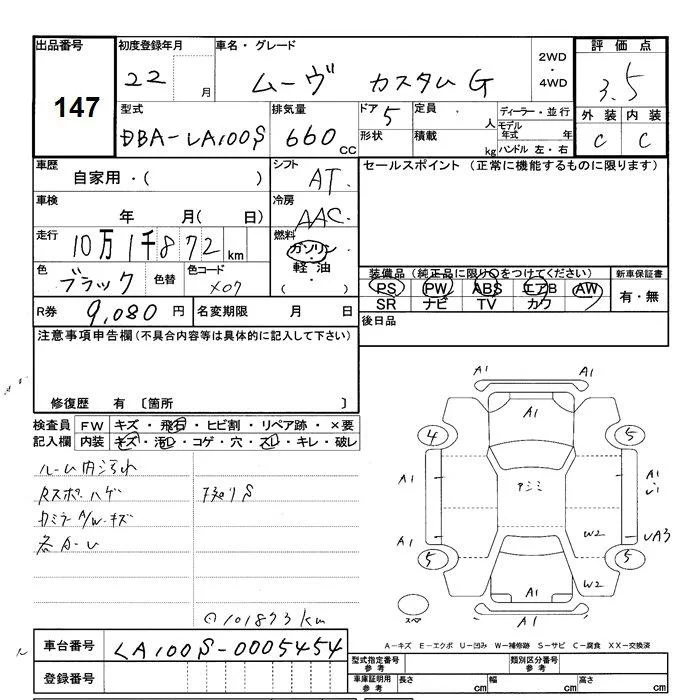 出品番号 初度登録年月 車名・グレード 2WD・4WD 評価点
147 22 月 ムーヴ カスタム G 3.5
型式 排気量 ドア 定員 人 ディーラー・並行 外装 内装
DBA-LA100S 660 CC 5 形状 積載 kg モデル年式 年 ハンドル 左・右 C C
車歴 シフト セールスポイント (正常に機能するものに限ります)
自家用・( ) AT
車検 冷房
年 月( 日) AAC
走行 燃料
10万1千872km ガソリン・軽油・
色 ブラック 色替 色コード X07
装備品 (純正品に限り○をつけてください) 新車保証書
PS PW ABS エアB AW 有・無
SR ナビ TV カワ
R券 9,080円 名変期限 月 日 後日品
注意事項申告欄 (不具合内容等は具体的に記入して下さい)
修復歴 有 〔箇所 〕
検査員 FW キズ・飛石・ヒビ割・リペア跡・×要
記入欄 内装 キズ・汚レ・コゲ・穴・スレ・キレ・破レ
ルーム内汚れ
Rスポ・ハゲ
カミラ A/W・キズ
101873km
A1 A1
A1
4 5
A1 アジミ A1
A1 W2 UA3
5 5
W2
A1
A1 A1
A-キズ E-エクボ U-凹み W-補修跡 S-サビ C-腐食 XX-交換済
車台番号 LA100S-0005454
登録番号
型式指定番号 参考 類別区分番号 参考
車庫証明用 参考 長さ cm 幅 cm 高さ cm